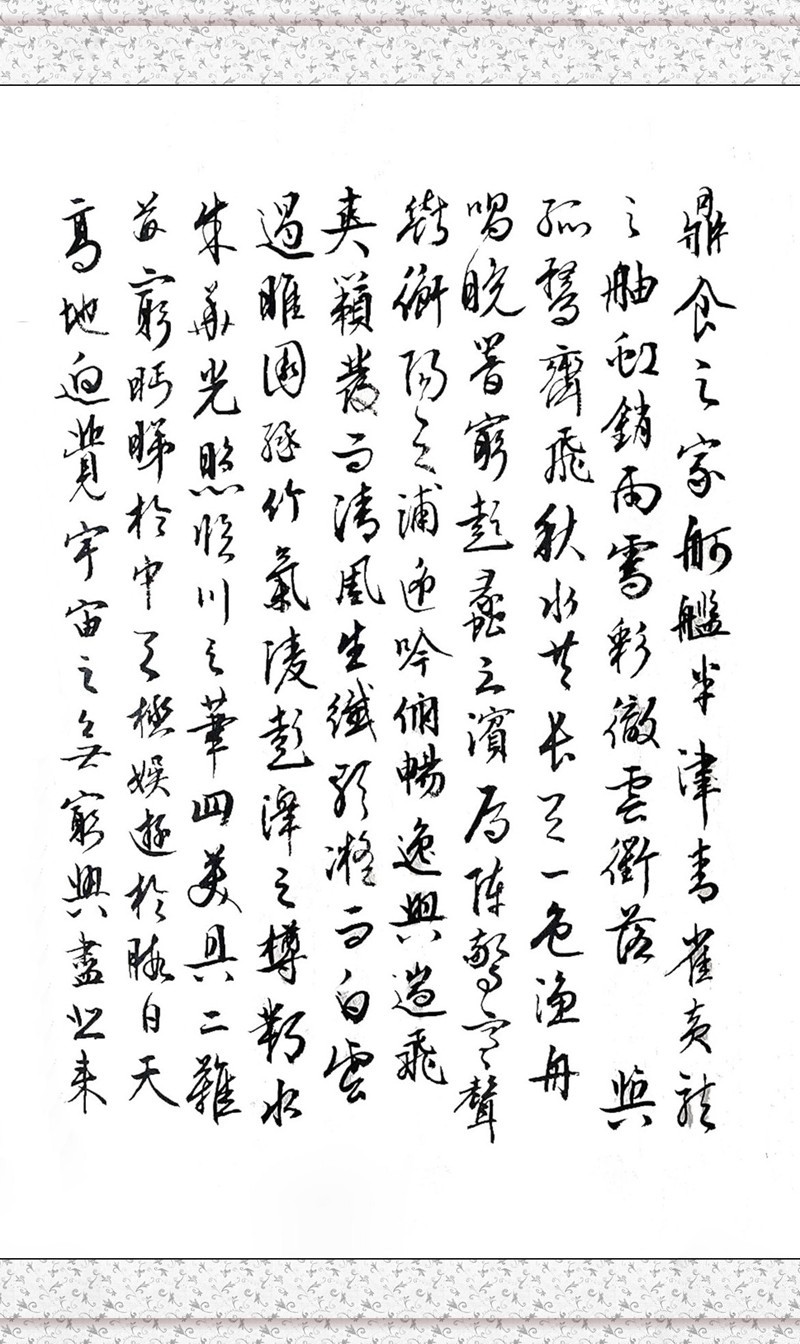 鼎食之家舸艦半津青雀黄龍
之舳虹銷雨霽彩徹雲衢落 與
孤鶩齊飛秋水共長天一色漁舟
唱晚響窮彭蠡之濱雁陣驚寒聲
斷衡陽之浦遥吟俯暢逸興遄飛
爽籟發而清風生纖歌凝而白雲
遏睢園緑竹氣淩彭澤之樽鄴水
朱華光照臨川之筆四美具二難
並窮眄睇於中天極娱遊於暇日天
高地迥覺宇宙之無窮興盡悲来